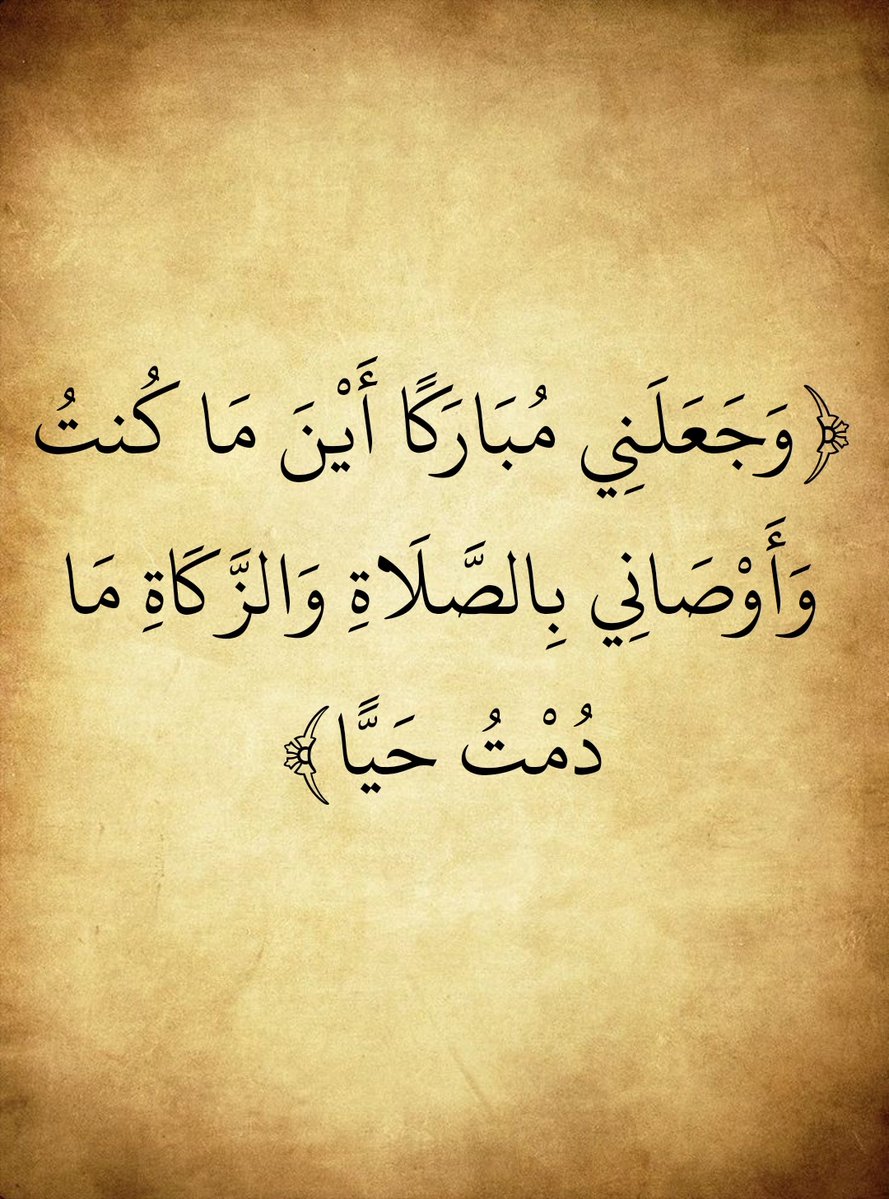 ﴿وَجَعَلَنِي مُبَارَكًا أَيْنَ مَا كُنتُ
وَأَوْصَانِي بِالصَّلَاةِ وَالزَّكَاةِ مَا
دُمْتُ حَيًّا﴾